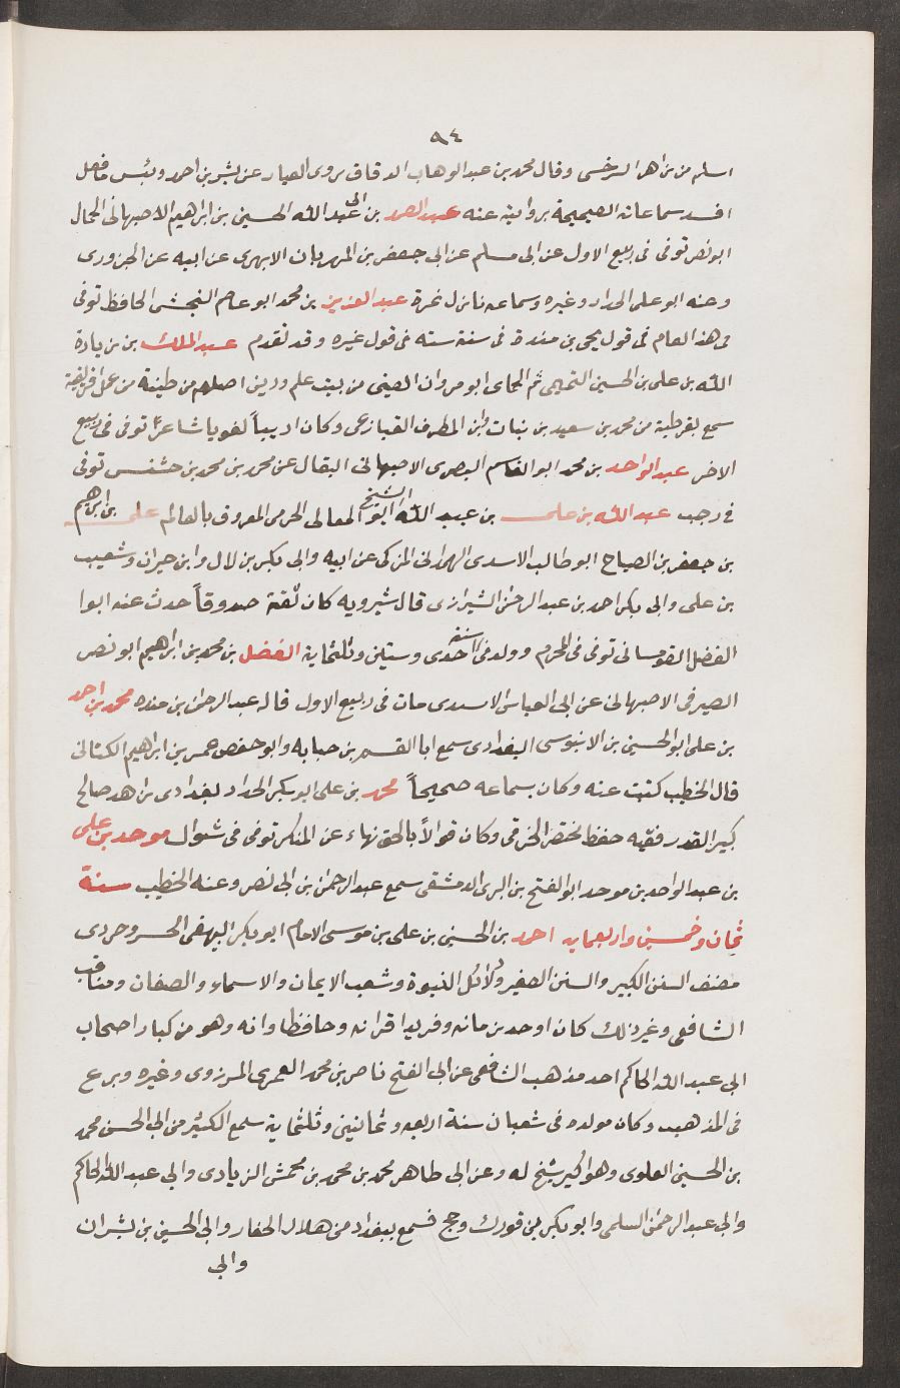 ٩٤
اسلم من زاهر السرخسى وقال محمد بن عبد الوهاب الدقاق روى العيار عن بشر بن احمد وبئس ما فعل
افسد سماعاته الصحيحة بروايته عنه عبد الصمد بن ابى عبد الله الحسين بن ابراهيم الاصبهانى الجمال
ابو نصر توفى فى ربيع الاول عن ابى مسلم عن ابى جعفر بن المرزبان الابهرى عن ابيه عن الحزورى
وعنه ابو على الحداد وغيره وسماعه نازل غمرة عبد العزيز بن محمد ابو عاصم النخشبى الحافظ توفى
فى هذا العام فى قول يحيى بن مندة فى سنة سته فى قول غيره وقد تقدم عبد الملك بن زيادة
الله بن على بن الحسين التميمى ثم الحماى ابو مروان الصينى من بيت علم ودين اصلهم من طبنة من عمل افريقية
سمع بقرطبة من محمد بن سعيد بن نبات وابن المطرف القنازعى وكان اديباً لغويا شاعرًا توفى فى ربيع
الاخر عبد الواحد بن محمد ابو القاسم البصرى الاصبهانى البقال عن محمد بن محمد بن حشنس توفى
فى رجب عبد الله بن على بن عبد الله ابو الشيخ المعالى الحرمى المعروف بالعالم على بن ابراهيم
بن جعفر بن الصباح ابو طالب الاسدى الهمدانى المزكى عن ابيه وابى بكر بن لال وابن جيران وشعيب
بن على وابى بكر احمد بن عبد الرحمن الشيرازى قال شيرويه كان ثقة صدوقاً حدث عنه ابوا
الفضل القومسانى توفى فى المحرم وولد فى سنة احدى وستين وثلثماية الفضل بن محمد بن ابراهيم ابو نصر
الصيرفى الاصبهانى عن ابى العباس الاسدى مات فى ربيع الاول قاله عبد الرحمن بن منده محمد بن احمد
بن على ابو الحسين بن الابنوسى البغدادى سمع ابا القسم بن حبابه وابو حفص عمر بن ابراهيم الكتانى
قال الخطيب كتبت عنه وكان بسماعه صحيحاً محمد بن على ابو بكر الحداد بغدادى زاهد صالح
كبير القدر فقيه حفظ مختصر الخرقى وكان قوالاً بالحق نهاء عن المنكر توفى فى شوال موحد بن على
بن عبد الواحد بن موحد ابو الفتح بن البرى الدمشقى سمع عبد الرحمن بن ابى نصر وعنه الخطيب سنة
ثمان وخمسين واربعمايه احمد بن الحسين بن على بن موسى الامام ابو بكر البيهقى الخسروجردى
مصنف السنن الكبير والسنن الصغير ودلائل النبوة وشعب الايمان والاسماء والصفات ومناقب
الشافعى وغير ذلك كان اوحد زمانه وفريد اقرانه وحافظ اوانه وهو من كبار اصحاب
ابى عبد الله الحاكم احد مذهب الشافعى عن ابى الفتح ناصر بن محمد العمرى المرزوى وغيره وبرع
فى المذهب وكان مولده فى شعبان سنة اربعه وثمانين وثلثماية سمع الكثير من ابى الحسن محمد
بن الحسين العلوى وهو اكبر شيخ له وعن ابى طاهر محمد بن محمد بن محمش الزيادى وابي عبد الله الحاكم
وابى عبد الرحمن السلمى وابو بكر بن فورك وحج فسمع ببغداد من هلال الحفار وابى الحسين بن بشران
وابى